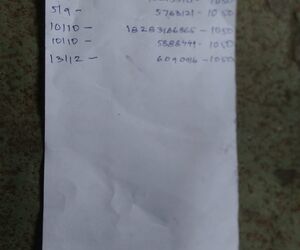 1050
5/9 - 5763121 - 1050
10/10 - 18283186865 - 1050
10/10 - 5888441 - 1050
13/12 - 6090916 - 1050